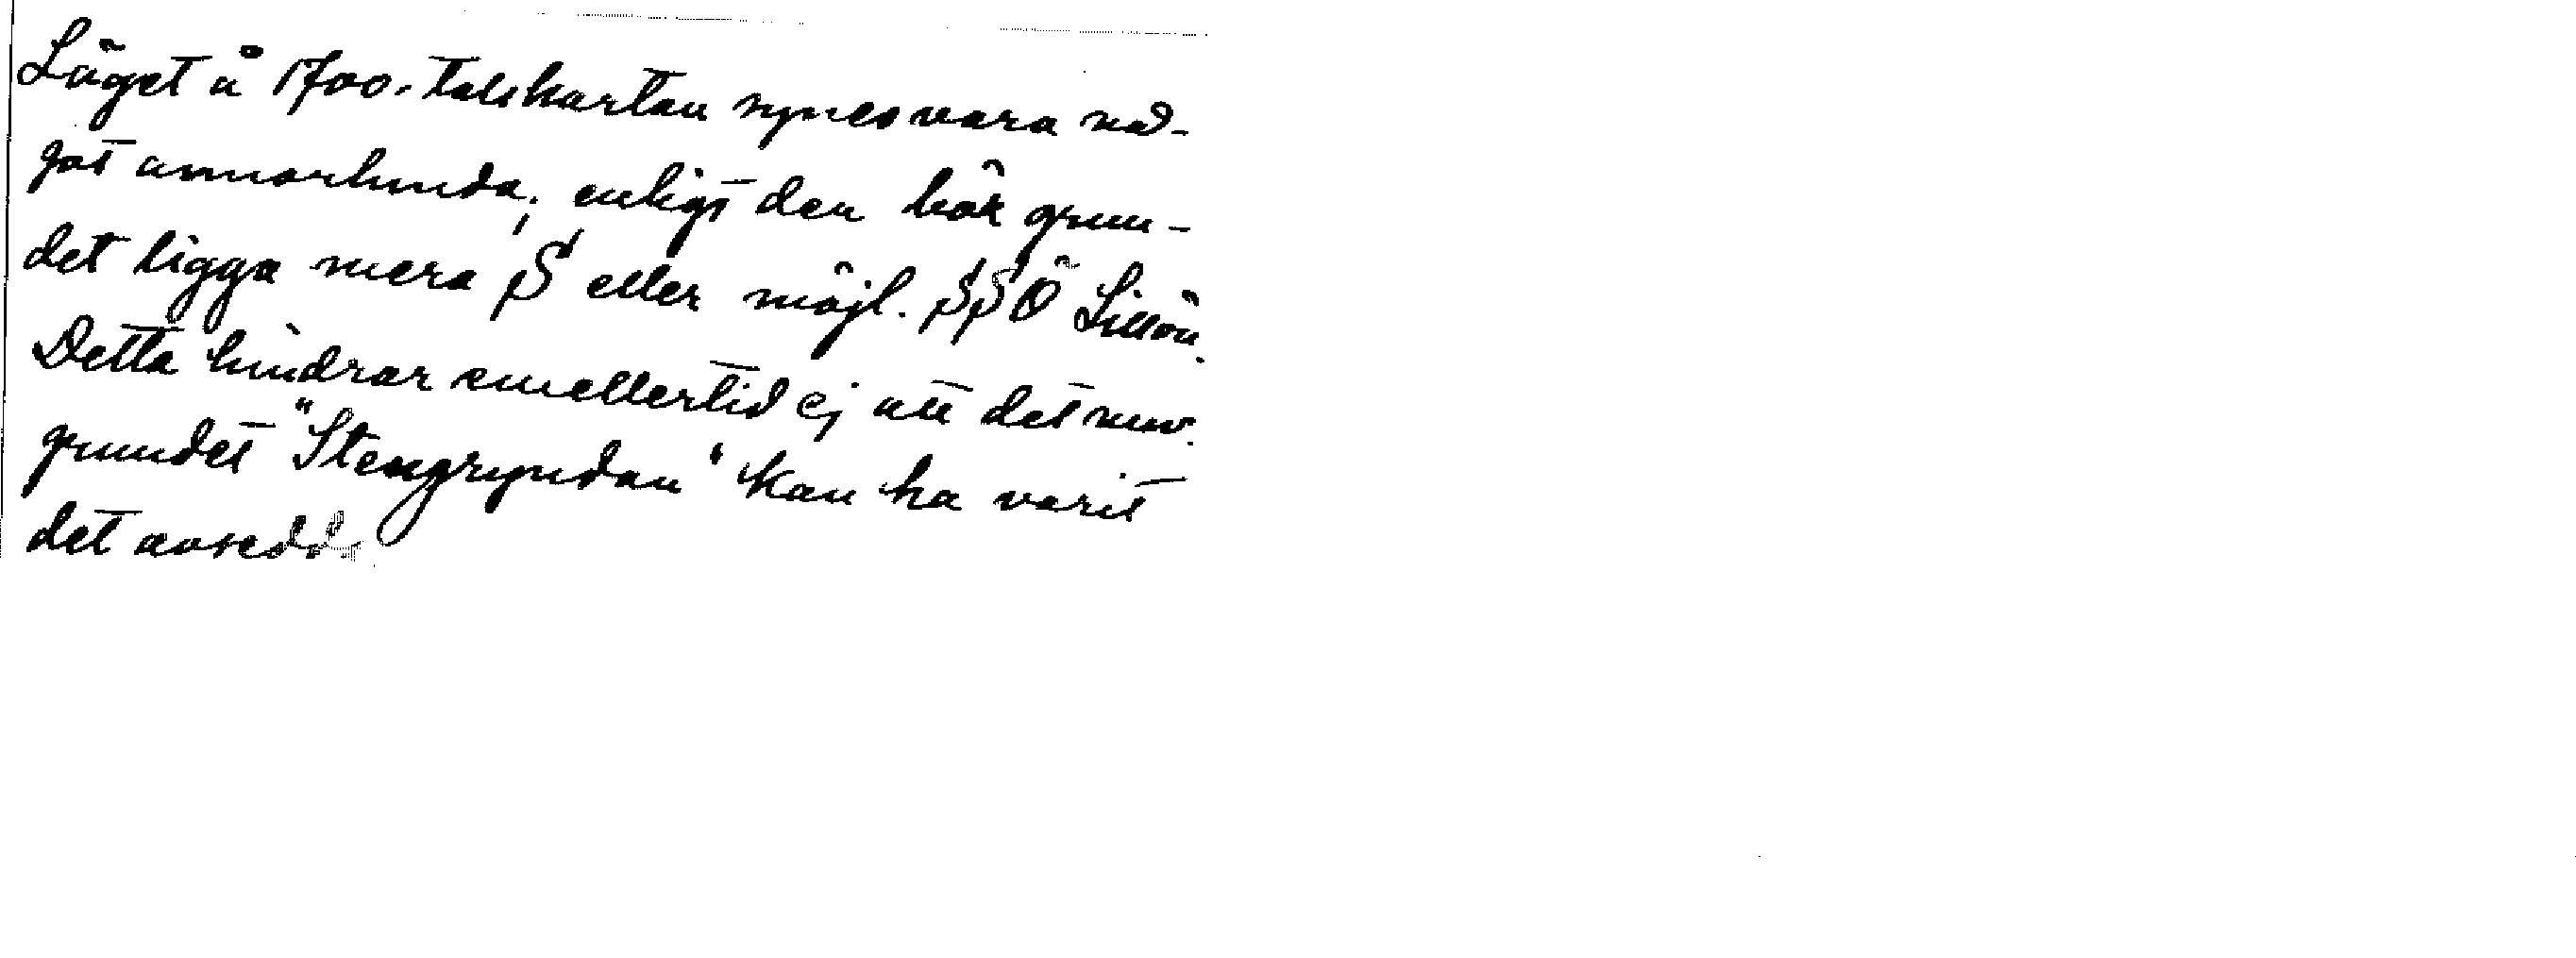 Läget å 1700-talskartan synes vara nå-
got annorlunda; enligt den bör grun-
det ligga mera S eller möjl. SSÖ Lillön.
Detta hindrar emellertid ej att det nuv.
grundet "Stengryndan" kan ha varit
det avsedda